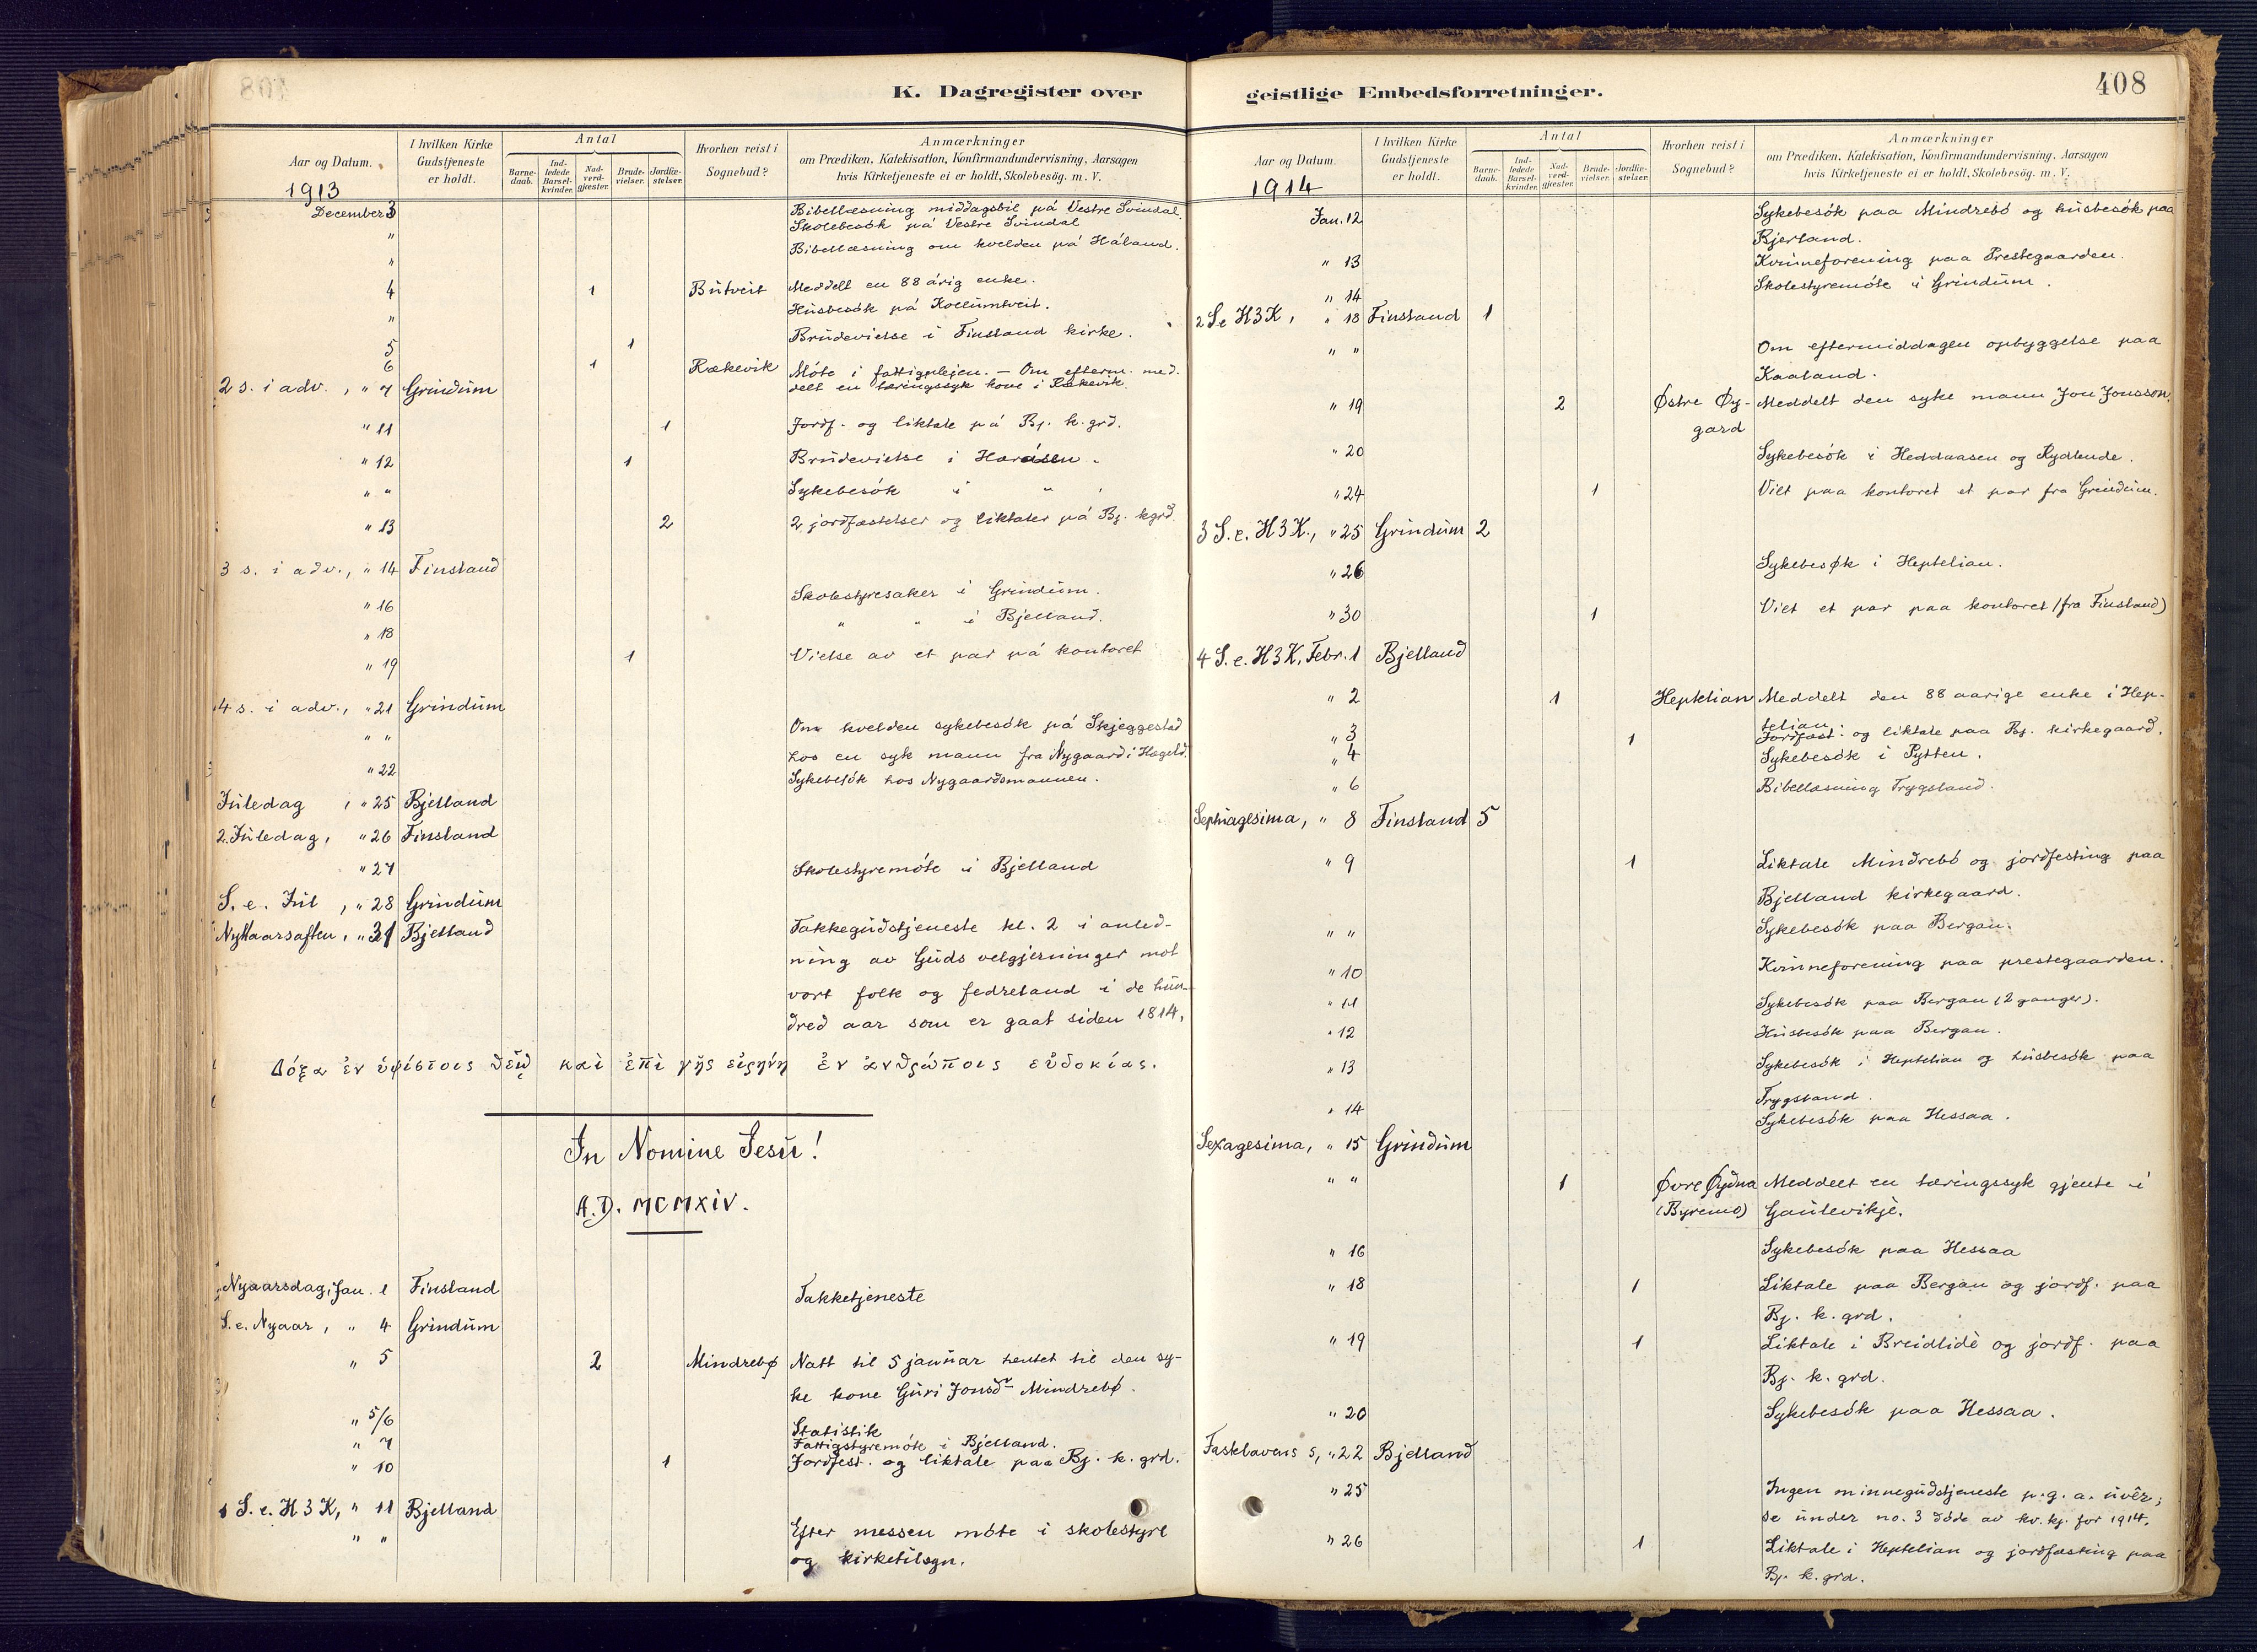 K. Dagregister over
Aar og Datum.
I hvilken Kirke Gudstjeneste er holdt.
Antal
Barnedaab.
Indledede Barselkvinder.
Nadverdgjester.
Brudevielser.
Jordfæstelser.
Hvorhen reist i Sognebud?
Anmærkninger
om Prædiken, Katekisation, Konfirmandundervisning, Aarsagen
hvis Kirketjeneste ei er holdt, Skolebesög. m. V.
1913
December 3 Bibellæsning middagsbil på Vestre Svindal.
Skolebesök på Vestre Svindal
" Bibellæsning om kvelden på Håland.
4 1 Butveit Meddelt en 88 årig enke.
" Husbesök på
5 1 Brudevielse i Finsland kirke.
6 1 Rækevik Möte i fattigplejen. – Om efterm. meddelt en tæringssyk kone i Rækevik.
2 s. i adv., " 7 Grindum
" 11 1 Jordf. og liktale på Bj. k. grd.
" 12 1 Brudevielse i Haraasen.
" " Sykebesök i "
" 13 2 2 jordfæstelser og liktaler på Bj. kgrd.
3 s. i adv., " 14 Finsland
" 16 Skolestyresaker i Grindum.
" 18 " " i Bjelland.
" 19 1 Vielse av et par på kontoret
4 s. i adv., " 21 Grindum
" " Om kvelden sykebesök på Skjeggestad
hos en syk mann fra Nygaard i Hægeld.
" 22 Sykebesök hos Nygaardsmannen.
Juledag, " 25 Bjelland
2. Juledag, " 26 Finsland
" 27 Skolestyremöte i Bjelland
S. e. Jul, " 28 Grindum
Nytaarsaften, " 31 Bjelland Takkegudstjeneste kl. 2 i anled-
ning av Guds velgjerninger mot
vort folk og fedreland i de hun-
dred aar som er gaat siden 1814.
Δόξα ἐν ὑψίστοις θεῷ καὶ ἐπὶ γῆς εἰρήνη ἐν ἀνθρώποις εὐδοκίας.
In Nomine Jesu!
A.D. MCMXIV.
Nyaarsdag, Jan. 1 Finsland Takketjeneste
S. e. Nyaar, " 4 Grindum
" 5 2 Mindrebø Natt til 5 januar hentet til den sy-
ke kone Guri Jonsdr Mindrebø.
" 5/6 Statistik
" 7 Fattigstyremöte i Bjelland.
" 10 1 Jordfest. og liktale paa Bj. k. grd.
1 S. e. H 3 K, " 11 Bjelland
" " Efter messen möte i skolestyre
og kirketilsyn.
geistlige Embedsforretninger.
408
Aar og Datum.
I hvilken Kirke Gudstjeneste er holdt.
Antal
Barnedaab.
Indledede Barselkvinder.
Nadverdgjester.
Brudevielser.
Jordfæstelser.
Hvorhen reist i Sognebud?
Anmærkninger
om Prædiken, Katekisation, Konfirmandundervisning, Aarsagen
hvis Kirketjeneste ei er holdt, Skolebesög. m. V.
1914
Jan. 12 Sykebesök paa Mindrebö og husbesök paa
Bjerland.
" 13 Kvinneforening paa Prestegaarden.
" 14 Skolestyremöte i Grindum.
2 S. e H3K, " 18 Finsland 1
" " Om eftermiddagen opbyggelse paa
Kaaland.
" 19 2 Østre Øy-
gard Meddelt den syke mann Jon Jonsson.
" 20 Sykebesök i Heddaasen og Rydlende.
" 24 1 Viet paa kontoret et par fra Grindum.
3 S. e. H3K., " 25 Grindum 2
" 26 Sykebesøk i Heptelian.
" 30 1 Viet et par paa kontoret (fra Finsland)
4 S. e. H3K, Febr. 1 Bjelland
" 2 1 Heptelian Meddelt den 88 aarige enke i Hep-
telian.
" 3 1 Jordfæst. og liktale paa Bj. kirkegaard.
" 4 Sykebesök i Pytten.
" 6 Bibellæsning Trygsland.
Septuagesima, " 8 Finsland 5
" 9 1 Liktale Mindrebö og jordfesting paa
Bjelland kirkegaard.
" " Sykebesök paa Bergan.
" 10 Kvinneforening paa prestegaarden.
" 11 Sykebesök paa Bergan (2 ganger).
" 12 Husbesök paa Bergan.
" 13 Sykebesök i Heptelian og husbesök paa
Trygsland.
" 14 Sykebesök paa Hessaa.
Sexagesima, " 15 Grindum
" " 1 Øvre Øydna
(Byremo) Meddelt en tæringssyk gjente i
Gaulevikje.
" 16 Sykebesök paa Hessaa
" 18 1 Liktale paa Bergan og jordf. paa
Bj. k. grd.
" 19 1 Liktale i Breidlidè og jordf. paa
Bj. k. grd.
" 20 Sykebesök paa Hessaa.
Fastelavens s, " 22 Bjelland
" 25 Ingen minnegudstjeneste p. g. a. uvêr;
se under no. 3 döde av kv. kj. for 1914.
" 26 1 Liktale i Heptelian og jordfæsting paa
Bj. k. grd.